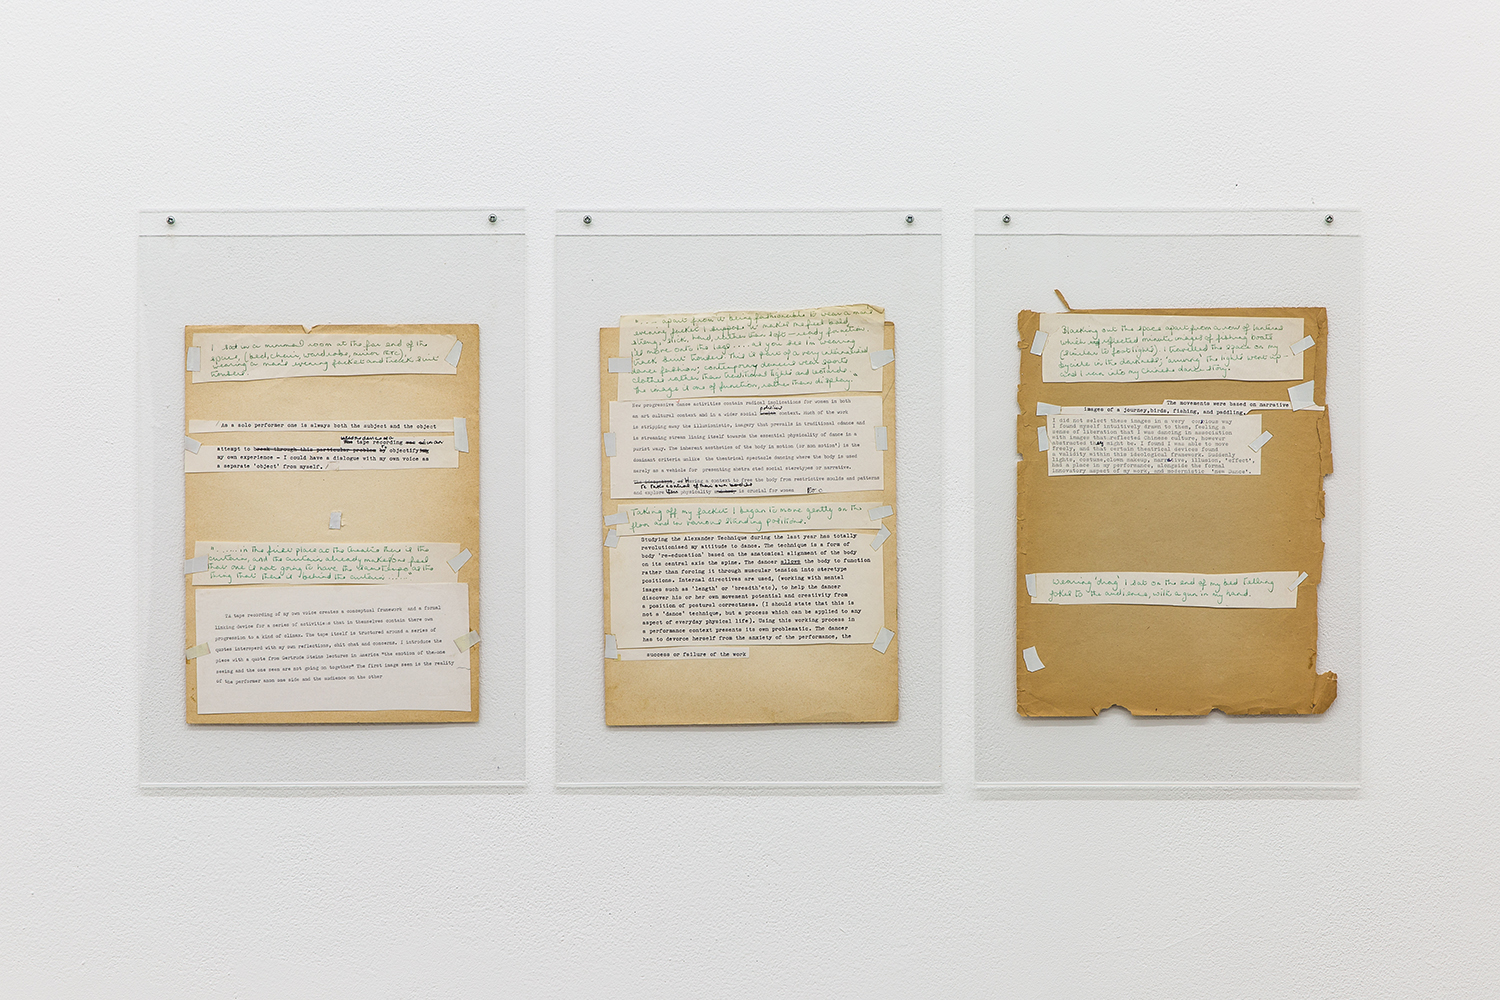 I sat in a minimal room at the far end of the
space, (bed, chair, wardrobe, mirror etc),
wearing a mans evening jacket and track suit
trousers.
As a solo performer one is always both the subject and the object
tape recording
attempt to break through this particular problem by objectify
my own experience - I could have a dialogue with my own voice as
a separate 'object' from myself.
"...... in the first place at the theatre there is the
curtain, and the curtain already makes one feel
that one is not going to have the same tempo as the
thing that there is behind the curtain ....."
Ta tape recording of my own voice creates a conceptual framework and a formal
linking device for a series of activities that in themselves contain there own
progression to a kind of climax. The tape itself is tructured around a series of
quotes intersperd with my own reflections, chit chat and concerns. I introduce the
piece with a quote from Gertrude Steins lectures in America "the emotion of the one
seeing and the one seen are not going on together" The first image seen is the reality
of the performer on one side and the audience on the other
"... apart from it being fashionable to wear a mans
evening jacket I suppose it makes me feel bold,
strong, slick, hard, rather than soft - ready for action.
I'd more onto the legs .... as you see I'm wearing
track suit trousers. This is part of a very internalised
dance fashion; contemporary dancers wear sports
clothes rather than traditional tights and leotards.
The image is one of function, rather than display."
New progressive dance activities contain radical implications for women in both
political
an art cultural context and in a wider social context. Much of the work
is stripping away the illusionistic, imagery that prevails in traditional edance and
is streaming stress lining itself towards the essential physicality of dance in a
purist way. The inherent aesthetics of the body in motion (or non motion) is the
dominant criteria unlike the theatrical spectacle dancing where the body is used
merely as a vehicle for presenting abstracted social stereotypes or narrative.
having a context to free the body from restrictive moulds and patterns
to take control of their own bodies
and explore physicality is crucial for women etc
Taking off my jacket I began to move gently on the
floor and in various standing positions.
Studying the Alexander Technique during the last year has totally
revolutionised my attitude to dance. The technique is a form of
body 're-education' based on the anatomical alignment of the body
on its central axis the spine. The dancer allows the body to function
rather than forcing it through muscular tension into steretype
positions. Internal directives are used, (working with mental
images such as 'length' or 'breadth'etc), to help the dancer
discover his or her own movement potential and creativity from
a position of postural correctness. (I should state that this is
not a 'dance' technique, but a process which can be applied to any
aspect of everyday physical life). Using this working process in
a performance context presents its own problematic. The dancer
has to devorce herself from the anxiety of the performance, the
success or failure of the work
Blacking out the space apart from a row of lanterns
which reflected minute images of fishing boats
(similar to footlights) I travelled the space on my
bicycle in the darkness; 'arriving' the lights went up -
and I ran into my Chinese dance story.
The movements were based on narrative
images of a journey, birds, fishing, and paddling.
I did not select these images in a very conscious way
I found myself intuitively drawn to them, feeling a
sense of liberation that I was dancing in association
with images that reflected Chinese culture, however
abstracted they might be. I found I was able to move
freely, and that certain theatrical devices found
a validity within this ideological framework. Suddenly
lights, costume, clown makeup, narrative, illusion, 'effect',
had a place in my performance, alongside the formal
innovatory aspect of my work, and modernistic 'new Dance'.
Wearing 'drag' I sat on the end of my bed telling
jokes to the audience, with a gun in my hand.